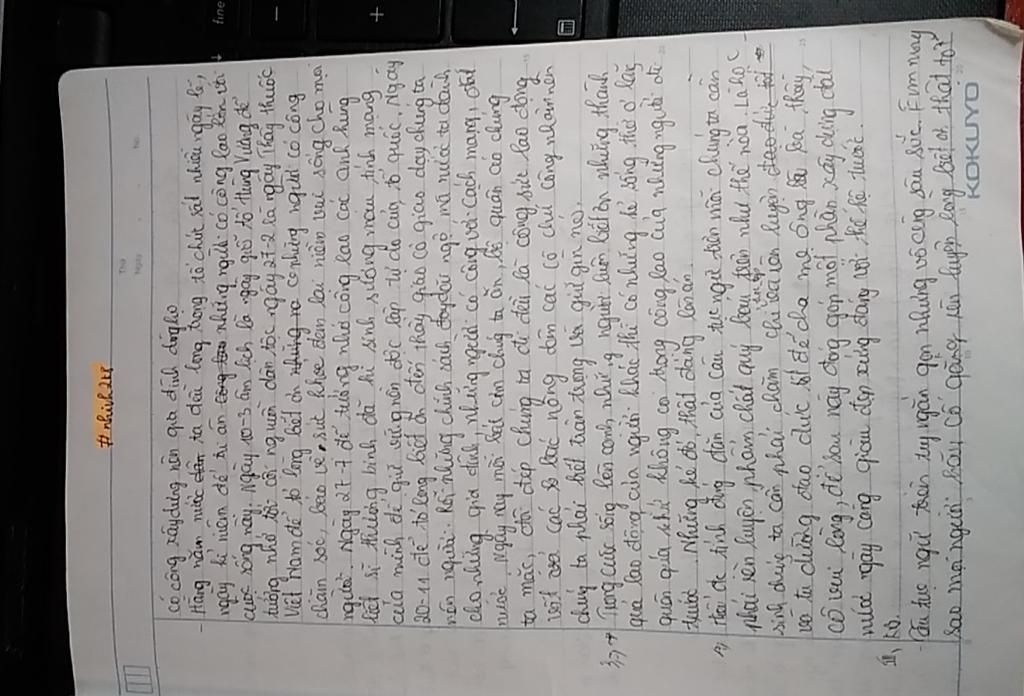 #nhinh2k8
Thứ
Ngày
No.
có công xây dựng nên gia đình dòng họ
- Hằng năm nước ta đều long trọng tổ chức rất nhiều ngày lễ,
ngày kỉ niệm để tri ân những người có công lao lớn với
cuộc sống này. Ngày 10-3 âm lịch là ngày giỗ tổ Hùng Vương để
tưởng nhớ tới cội nguồn dân tộc ngày 27-2 là ngày Thầy thuốc
Việt Nam để tỏ lòng biết ơn những người có công
chăm sóc, bảo vệ sức khỏe đem lại niềm vui sống cho mọi
người. Ngày 27-7 để tưởng nhớ công lao các anh hùng
liệt sĩ thương binh đã hi sinh xương máu, tính mạng
của mình để giữ vững nền độc lập tự do của tổ quốc. Ngày
20-11 để tỏ lòng biết ơn đến thầy giáo cô giáo dạy chúng ta
nên người. Rồi những chính sách đãi ngộ mà nước ta dành
cho những gia đình, những người có công với cách mạng, đất
nước. Ngày nay mỗi bát cơm chúng ta ăn, bộ quần áo chúng
ta mặc, đôi dép chúng ta đi đều là công sức lao động
vất vả các bác nông dân các cô chú công nhân nên
chúng ta phải biết trân trọng và giữ gìn nó.
Trong cuộc sống bên cạnh những người luôn biết ơn những thành
quả lao động của người khác thì có những kẻ sống thờ ơ lãng
quên quá khứ không coi trọng công lao của những người đi
trước. Những kẻ đó thật đáng lên án.
Thấy được tính đúng đắn của câu tục ngữ trên mỗi chúng ta cần
phải rèn luyện phẩm chất quý báu trên như thế nào. Là học
sinh chúng ta cần phải chăm chỉ học tập rèn luyện
và tu dưỡng đạo đức tốt để cha mẹ ông bà vui thầy,
cô vui lòng, để sau này đóng góp một phần xây dựng đất
nước ngày càng giàu đẹp xứng đáng với thế hệ trước.
III, KB.
- Câu tục ngữ trên tuy ngắn gọn nhưng vô cùng sâu sắc. Em mong
sao mọi người hãy cố gắng rèn luyện lòng biết ơn thật tốt
KOKUYO